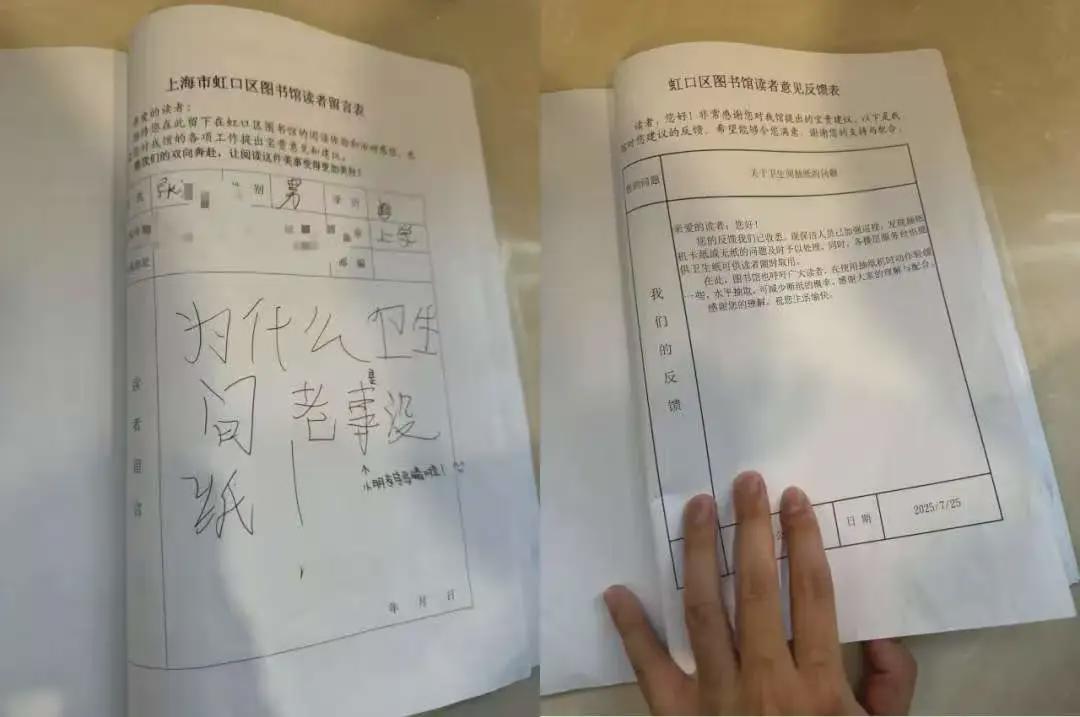 上海市虹口区图书馆读者留言表
亲爱的读者:
您在此留下在虹口区图书馆的阅读体验和
您对我馆的各项工作提出宝贵意见和建议。
我们的双向奔赴,让阅读这件美事变得更加美妙!
别
男
学历
上学
邮编
读者留言
为什么卫生
间老事没
是
纸!
小朋友
年 月 日
虹口区图书馆读者意见反馈表
读者,您好!非常感谢您对我馆提出的宝贵建议,以下是我
馆对您建议的反馈,希望能够令您满意,谢谢您的支持与配合。
您的问题
关于卫生间抽纸的问题
我们的反馈
亲爱的读者:您好!
您的反馈我们已收悉。现保洁人员已加强巡视,发现抽纸
机卡纸或无纸的问题及时予以处理。同时,各楼层服务台也提
供卫生纸可供读者随时取用。
在此,图书馆也呼吁广大读者,在使用抽纸机时动作轻缓
一些,水平抽取,可减少断纸的概率,感谢大家的理解与配合。
感谢您的理解,祝您生活愉快。
日期
2025/7/25